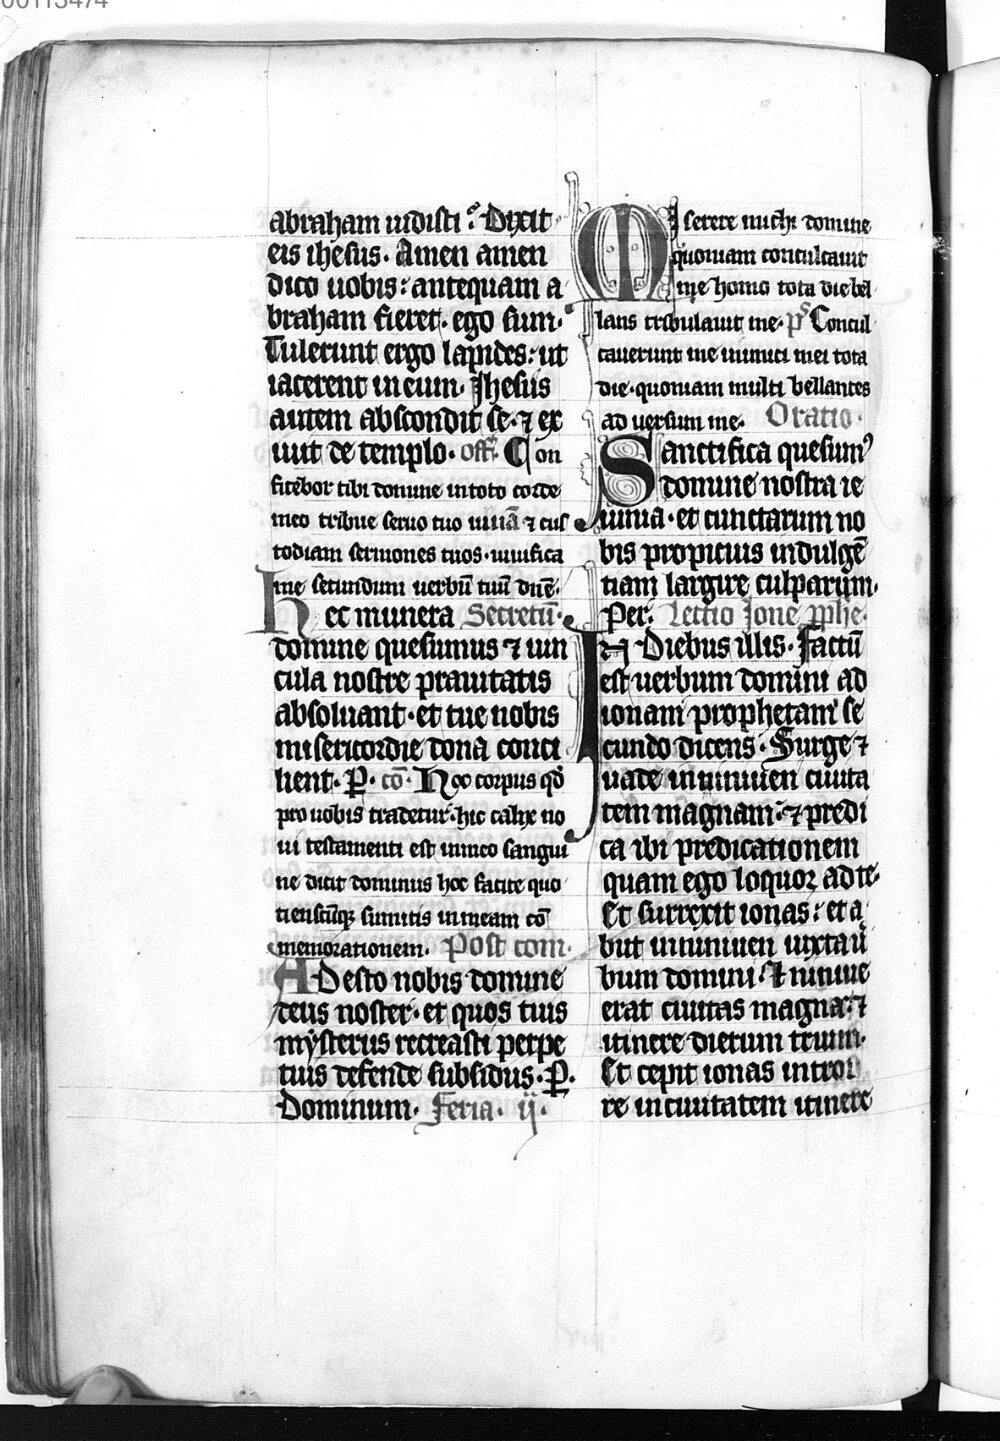 00113474
abraham uidisti? Dixit
eis ihesus. Amen amen
dico uobis: antequam a
braham fieret. ego sum.
Tulerunt ergo lapides: ut
iacerent in eum. Jhesus
autem abscondit se. ⁊ ex
iuit de templo. off. Con
fitebor tibi domine in toto corde
meo tribue seruo tuo uitā ⁊ cus
todiam sermones tuos. uiuifica
me secundum uerbū tuū dnē.
Hec munera Secretū.
domine quesumus ⁊ uin
cula nostre prauitatis
absoluant. et tue nobis
misericordie dona conci
lient. P. cō. Hoc corpus qđ
pro uobis tradetur. hic calix no
ui testamenti est in meo sangui
ne dicit dominus hoc facite quo
tienscūqꝫ sumitis in meam cō
memorationem. Post com.
Adesto nobis domine
deus noster. et quos tuis
mysteriis recreasti perpe
tuis defende subsidiis. P.
Dominum. Feria. ij.
Miserere michi domine
quoniam conculcauit
me homo tota die bel
lans tribulauit me. ps Concul
cauerunt me inimici mei tota
die. quoniam multi bellantes
ad uersum me. Oratio.
Sanctifica quesumꝰ
domine nostra ie
iunia. et cunctarum no
bis propicius indulgē
tiam largire culparum.
Per. Lectio Ione pphe.
In Diebus illis. Factū
est uerbum domini ad
ionam prophetam se
cundo dicens. Surge ⁊
uade in niniuen ciuita
tem magnam: ⁊ predi
ca ibi predicationem
quam ego loquor ad te.
Et surrexit ionas: et a
but in niniuen iuxta ū
bum domini. Et niniue
erat ciuitas magna: ⁊
itinere dierum trium.
Et cepit ionas introi
re in ciuitatem itinere